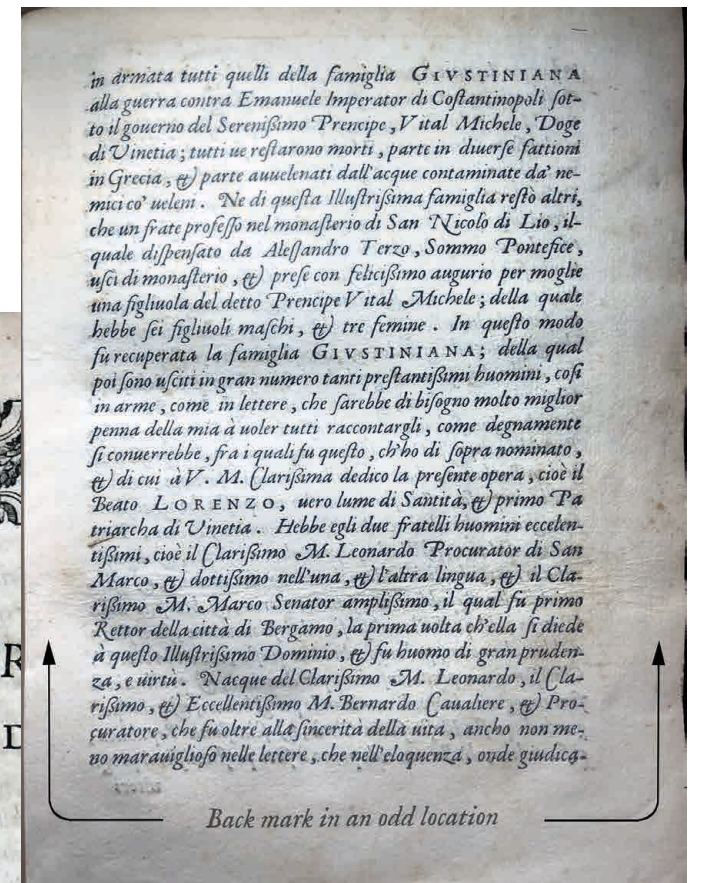 in armata tutti quelli della famiglia GIVSTINIANA
alla guerra contra Emanuele Imperator di Coſtantinopoli ſot-
to il gouerno del Sereniſſimo Prencipe, Vital Michele, Doge
di Vinetia; tutti ue reſtarono morti, parte in diuerſe fattioni
in Grecia, & parte auuelenati dall'acque contaminate da' ne-
mici co' ueleni. Ne di queſta Illuſtriſſima famiglia reſtò altri,
che un frate profeſſo nel monaſterio di San Nicolò di Lio, il-
quale diſpenſato da Aleſſandro Terzo, Sommo Pontefice,
uſci di monaſterio, & preſe con feliciſſimo augurio per moglie
una figliuola del detto Prencipe Vital Michele; della quale
hebbe ſei figliuoli maſchi, & tre femine. In queſto modo
fu recuperata la famiglia GIVSTINIANA; della qual
poi ſono uſciti in gran numero tanti preſtantiſſimi huomini, coſi
in arme, come in lettere, che ſarebbe di biſogno molto miglior
penna della mia à uoler tutti raccontargli, come degnamente
ſi conuerrebbe, fra i quali fu queſto, ch'ho di ſopra nominato,
& di cui à V. M. Clariſſima dedico la preſente opera, cioè il
Beato LORENZO, uero lume di Santità, & primo Pa
triarcha di Vinetia. Hebbe egli due fratelli huomini eccelen-
tiſſimi, cioè il Clariſſimo M. Leonardo Procurator di San
Marco, & dottiſſimo nell'una, & l'altra lingua, & il Cla-
riſſimo M. Marco Senator ampliſſimo, il qual fu primo
Rettor della città di Bergamo, la prima uolta ch'ella ſi diede
à queſto Illuſtriſſimo Dominio, & fu huomo di gran pruden-
za, e uirtù. Nacque del Clariſſimo M. Leonardo, il Cla-
riſſimo, & Eccellentiſſimo M. Bernardo Caualiere, & Pro-
curatore, che fu oltre alla ſincerità della uita, ancho non me-
no marauiglioſo nelle lettere, che nell'eloquenza, onde giudica-
Back mark in an odd location
R
D